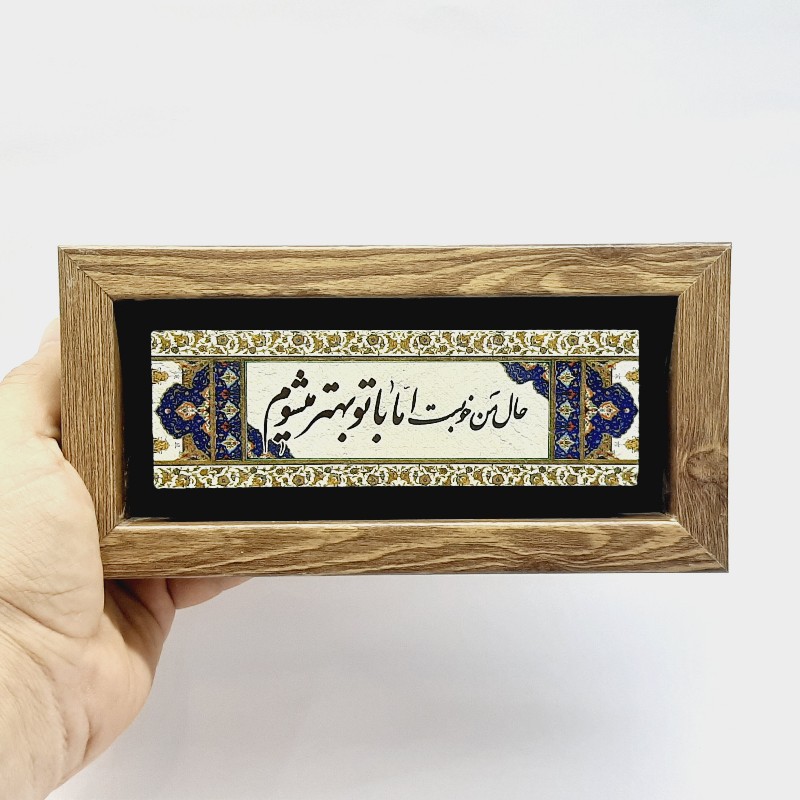 حال من خوبست امّا با تو بهتر میشوم